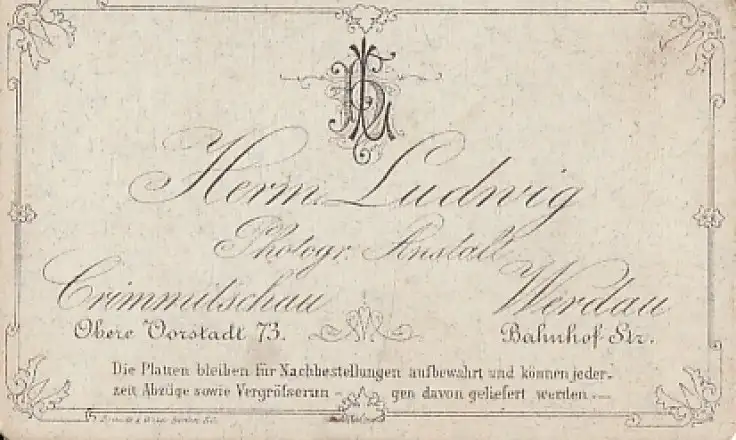 HL
Herm. Ludwig
Photogr. Anstalt
Crimmitschau Werdau
Obere Vorstadt 73. Bahnhof Str.
Die Platten bleiben für Nachbestellungen aufbewahrt und können jeder-
zeit Abzüge sowie Vergröfserun - gen davon geliefert werden.